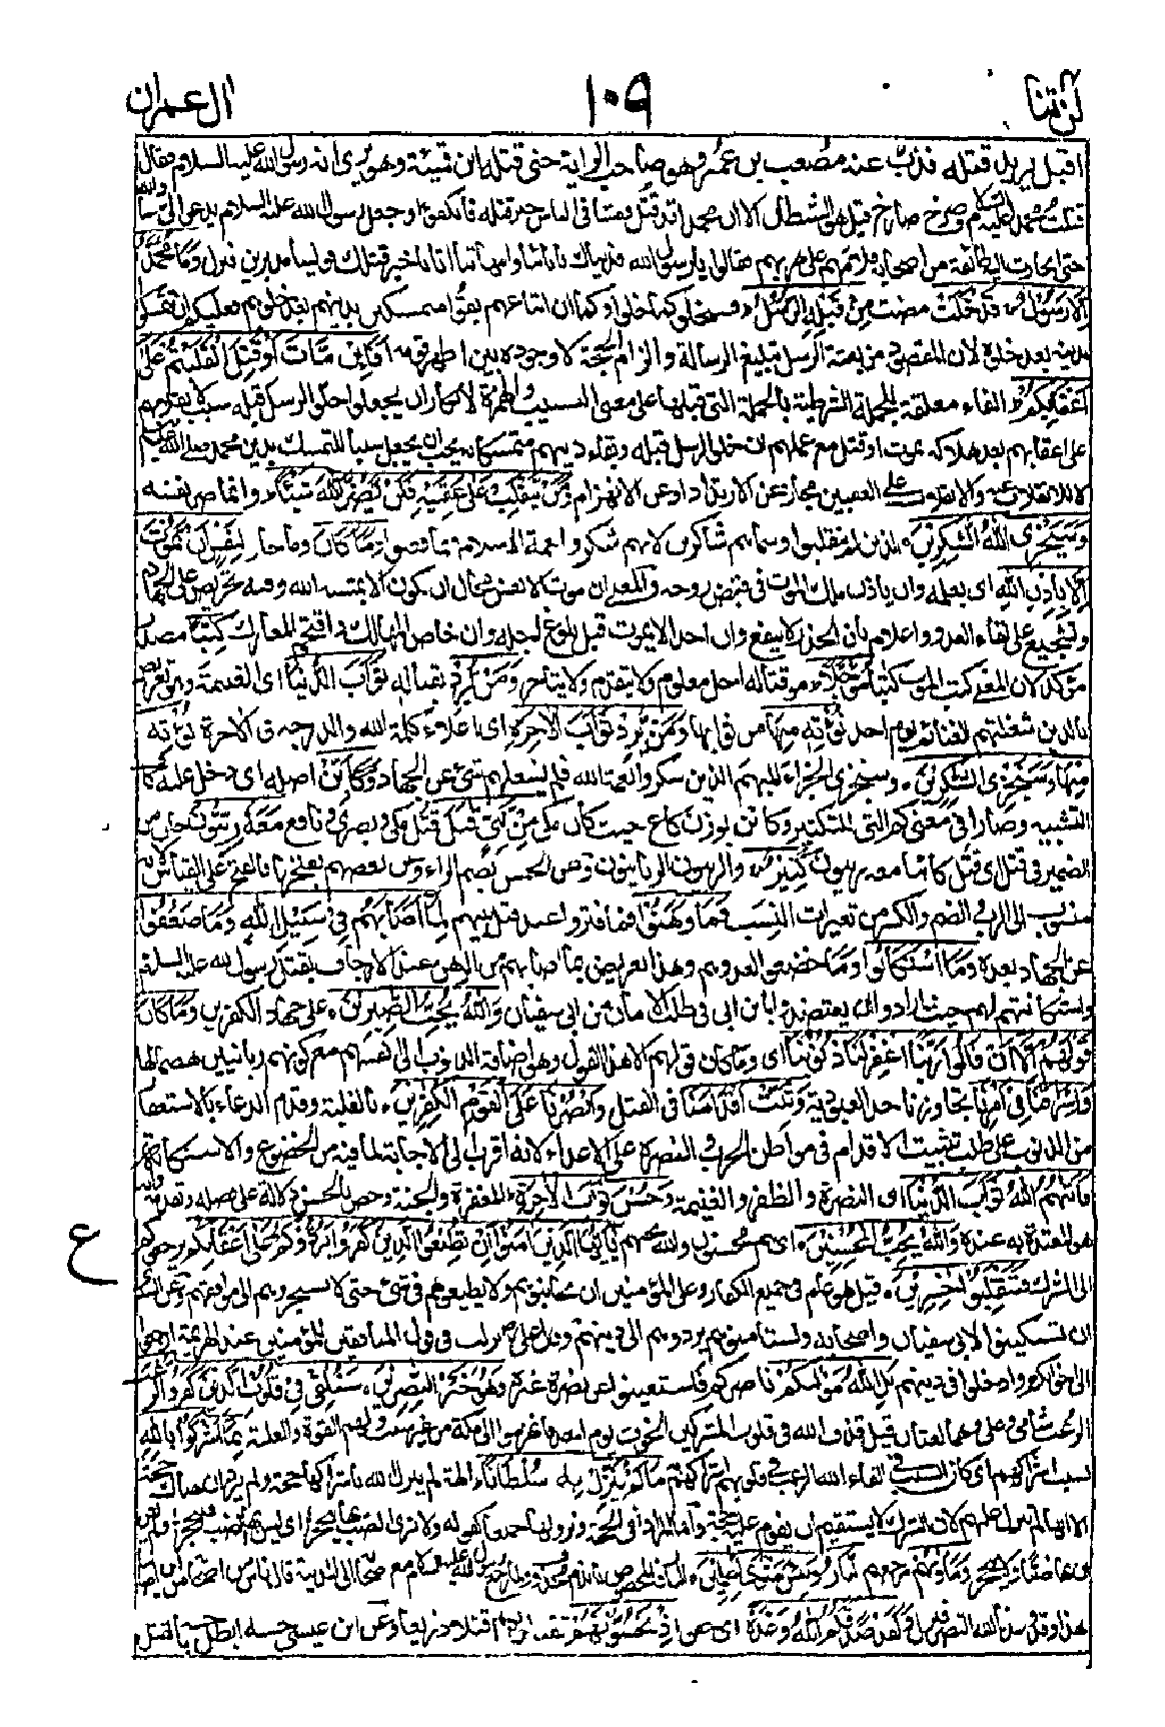 لن تنا ١٠٩ ال عمران
اقبل يريد قتله فذب عنه مصعب بن عمير وهو صاحب الراية حتى قتله ابن قميئة وهو يرى انه رسول الله عليه السلام فقال
قتلت محمدا عليه السلام وصرخ صارخ قيل هو الشيطان الا ان محمدا قد قتل وفشا في الناس خبر قتله فانكفؤا وجعل رسول الله عليه السلام يدعو الى عباد الله
حتى انحازت اليه طائفة من اصحابه فلامهم على هربهم فقالوا يا رسول الله فديناك بابائنا وامهاتنا اتانا خبر قتلك فولينا مدبرين فنزل وما محمد
الا رسول قد خلت مضت من قبله الرسل فسيخلو كما خلوا وكما ان اتباعهم بقوا متمسكين بدينهم بعد خلوهم فعليكم ان تمسكوا
بدينه بعد خلوه لان المقصود من بعثة الرسل تبليغ الرسالة والزام الحجة لا وجوده بين اظهر قومه افائن مات او قتل انقلبتم على
اعقابكم الفاء معلقة للجملة الشرطية بالجملة التي قبلها على معنى التسبيب والهمزة لانكار ان يجعلوا خلو الرسل قبله سببا لانقلابهم
على اعقابهم بعد هلاكه بموت او قتل مع علمهم ان خلو الرسل قبله وبقاء دينهم متمسكا به يجب ان يجعل سببا للتمسك بدين محمد صلى الله عليه وسلم
لا للانقلاب عنه والانقلاب على العقبين مجاز عن الارتداد او عن الانهزام ومن ينقلب على عقبيه فلن يضر الله شيئا وانما ضر نفسه
وسيجزي الله الشكرين الذين لم ينقلبوا وسماهم شاكرين لانهم شكروا نعمة الاسلام فيما فعلوا وما كان وما جاز لنفس ان تموت
الا باذن الله اى بعلمه او بان ياذن ملك الموت في قبض روحه والمعنى ان موت الانفس محال ان يكون الا بمشية الله وفيه تحريض على الجهاد
وتشجيع على لقاء العدو واعلام بان الحذر لا ينفع وان احدا لا يموت قبل بلوغ اجله وان خاض المهالك واقتحم المعارك كتبا مصدر
مؤكد لان المعنى كتب الموت كتبا مؤجلا موقتا له اجل معلوم لا يتقدم ولا يتاخر ومن يرد بقتاله ثواب الدنيا اى الغنيمة وهو تعريض
بالذين شغلتهم الغنائم يوم احد نؤته منها من ثوابها ومن يرد ثواب الاخرة اى اعلاء كلمة الله والدرجة في الاخرة نؤته
منها وسنجزي الشكرين وسنجزي الجزاء المبهم الذين شكروا نعمة الله فلم يشغلهم شئ عن الجهاد وكاين اصله اى دخل عليه كاف
التشبيه وصارا في معنى كم التي للتكثير وكائن بوزن كاع حيث كان مكي من نبي قتل قتل مكي وبصري ونافع معه ربيون حال من
الضمير في قتل اى قتل كائنا معه ربيون كثير والربيون الربانيون وعن الحسن بضم الراء وعن بعضهم بفتحها فالفتح على القياس لانه
منسوب الى الرب والضم والكسر من تغيرات النسب فما وهنوا فما فتروا عند قتل نبيهم لما اصابهم في سبيل الله وما ضعفوا
عن الجهاد بعده وما استكانوا وما خضعوا لعدوهم وهذا تعريض بما اصابهم من الوهن عند الارجاف بقتل رسول الله عليه السلام
واستكانتهم لهم حيث ارادوا ان يعتضدوا بابن ابى في طلب الامان من ابى سفيان والله يحب الصبرين على جهاد الكفرين وما كان
قولهم الا ان قالوا ربنا اغفر لنا ذنوبنا اى وما كان قولهم الا هذا القول وهو اضافة الذنوب الى انفسهم مع كونهم ربانيين هضما لها
واسرافنا في امرنا تجاوزنا حد العبودية وثبت اقدامنا في القتل وانصرنا على القوم الكفرين بالغلبة وقدم الدعاء بالاستغفار
من الذنوب على طلب تثبيت الاقدام في مواطن الحرب والنصرة على الاعداء لانه اقرب الى الاجابة لما فيه من الخضوع والاستكانة
فاتهم الله ثواب الدنيا اى النصرة والظفر والغنيمة وحسن ثواب الاخرة المغفرة والجنة وخص بالحسن دلالة على فضله وتقدمه وانه
هو المعتد به عنده والله يحب المحسنين اى هم محسنون والله يحبهم يايها الذين امنوا ان تطيعوا الذين كفروا يردوكم على اعقابكم يرجعوكم
الى الشرك فتنقلبوا خسرين قيل هو عام في جميع الكفار وعلى المؤمنين ان يجانبوهم ولا يطيعوهم في شئ حتى لا يستجروهم الى موافقتهم وعن السدي
ان تستكينوا لابى سفيان واصحابه وتستامنوهم يردوكم الى دينهم وقال على رضى الله عنه نزلت في قول المنافقين للمؤمنين عند الهزيمة ارجعوا
الى اخوانكم وادخلوا في دينهم بل الله مولىكم ناصركم فاستغنوا عن نصرة غيره وهو خير النصرين سنلقي في قلوب الذين كفروا الرعب
الرعب شامي وعلى وهما لغتان قيل قذف الله في قلوب المشركين الخوف يوم احد فانهزموا الى مكة من غير سبب ولهم القوة والغلبة بما اشركوا بالله
بسبب اشراكهم اى كان السبب في القاء الله الرعب في قلوبهم اشراكهم ما لم ينزل به سلطانا الهة لم ينزل الله باشراكها حجة ولم يرد ان هناك حجة
الا انها لم تنزل عليهم لان الشرك لا يستقيم ان يقوم عليه حجة وانما المراد نفى الحجة ونزولها جميعا كقوله ولا ترى الضب بها ينجحر اى ليس بها ضب فينجحر ولم يعن
ان بها ضبا ولا ينجحر وماوىهم مرجعهم النار وبئس مثوى الظلمين النار فالمخصوص بالذم محذوف ولما رجع رسول الله عليه السلام مع اصحابه الى المدينة قال ناس من اصحابه من اين اصابنا
هذا وقد وعدنا الله النصر فنزل ولقد صدقكم الله وعده اى حقق اذ تحسونهم تقتلونهم قتلا ذريعا وعن ابن عيسى حسه ابطل حسه بالقتل
ع